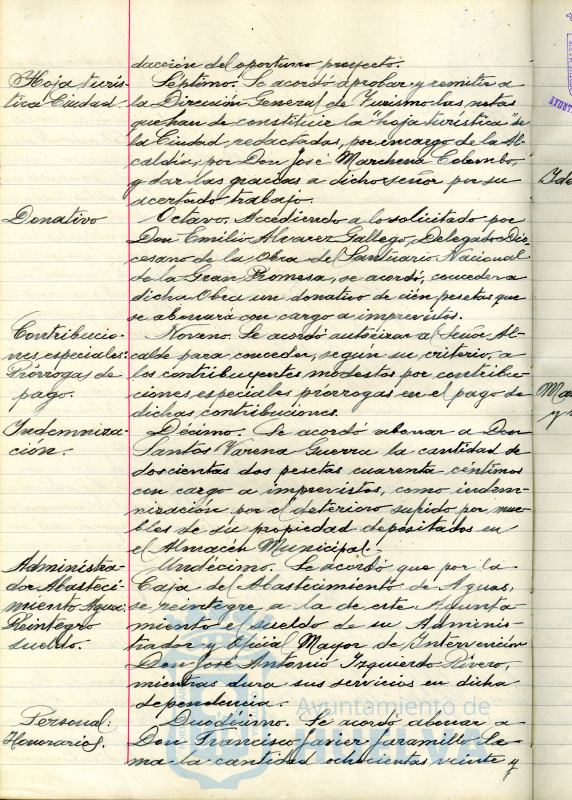 dacción del oportuno proyecto.
Hoja turís-
tica Ciudad.
Séptimo. Se acordó aprobar y remitir a
la Dirección General de Turismo las notas
que han de constituir la "hoja turística" de
la Ciudad redactadas, por encargo de la Al-
caldía, por Don José Marchena Colombo,
y dar las gracias a dicho señor por su
acertado trabajo.
Donativo
Octavo. Accediendo a lo solicitado por
Don Emilio Alvarez Gallego, Delegado Dio-
cesano de la Obra del Santuario Nacional
de la Gran Promesa, se acordó, conceder a
dicha Obra un donativo de cien pesetas que
se abonará con cargo a imprevistos.
Contribucio-
nes especiales:
Prórrogas de
pago.
Noveno. Se acordó autorizar al Señor Al-
calde para conceder, según su criterio, a
los contribuyentes modestos por contribu-
ciones especiales prórrogas en el pago de
dichas contribuciones.
Indemniza-
ción.
Décimo. Se acordó abonar a Don
Santos Varena Guerra la cantidad de
doscientas dos pesetas cuarenta céntimos
con cargo a imprevistos, como indem-
nización por el deterioro sufrido por mue-
bles de su propiedad depositados en
el Almacén Municipal.
Administra-
dor Abasteci-
miento Aguas:
Reintegro
sueldo.
Undécimo. Se acordó que por la
Caja del Abastecimiento de Aguas,
se reintegre, a la de este Ayunta-
miento el sueldo de su Adminis-
trador y Oficial Mayor de Intervención
Don José Antonio Izquierdo Rivero,
mientras dura sus servicios en dicha
dependencia.
Personal:
Honorarios.
Duodécimo. Se acordó abonar a
Don Francisco Javier Jaramillo La-
ma la cantidad ochocientas veinte y
Ayuntamiento de
HUELVA